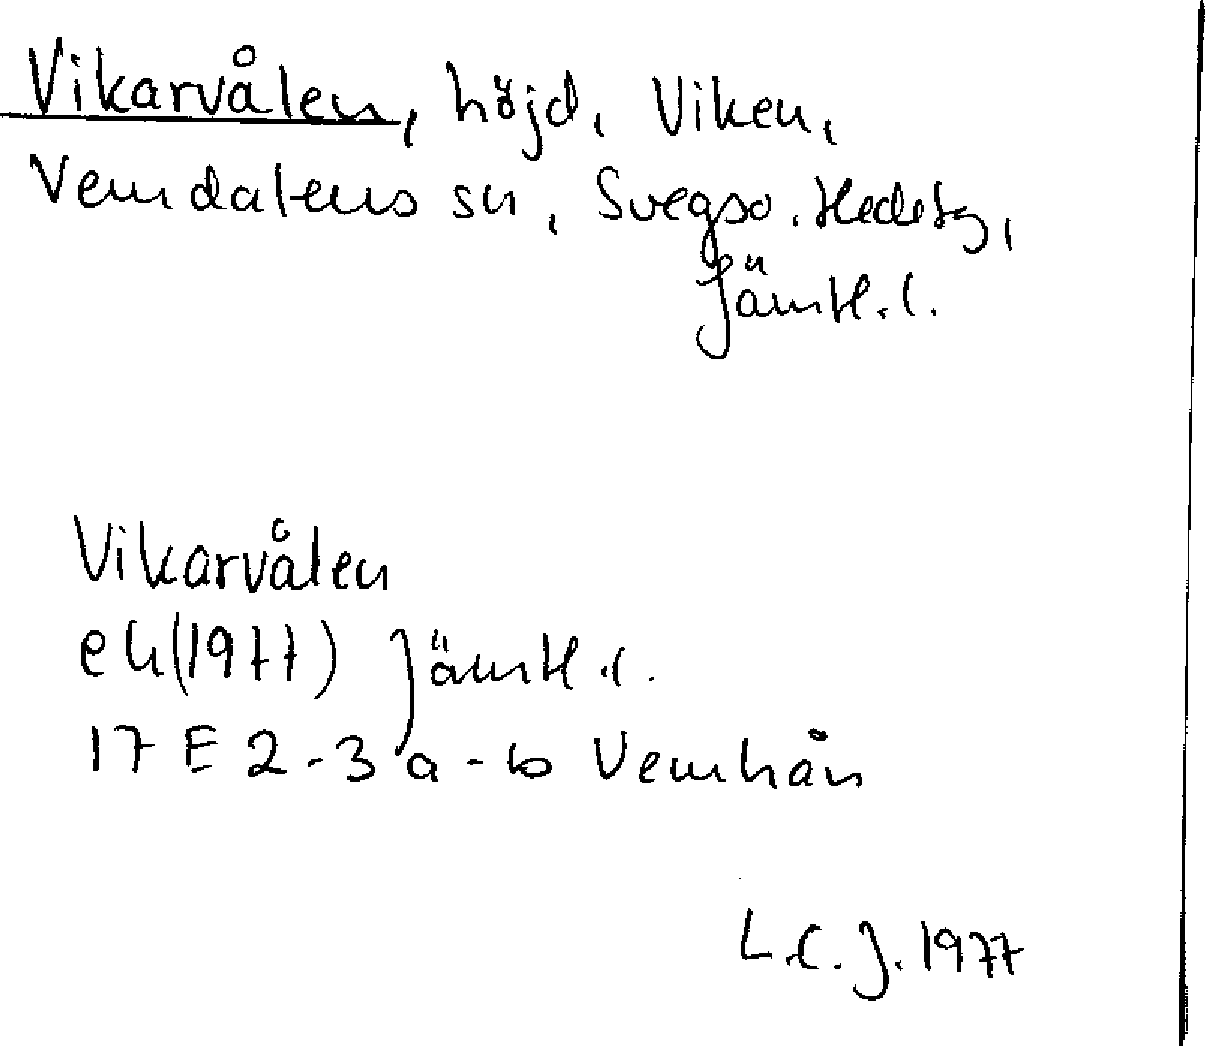 Vikarvålen, höjd, Viken,
Vemdalens sn, Svegso. Hedetg,
Jämtl. l.
Vikarvålen
ek (1977) Jämtl. l.
17 E 2-3 a-b Vemhån
L.C.J. 1977